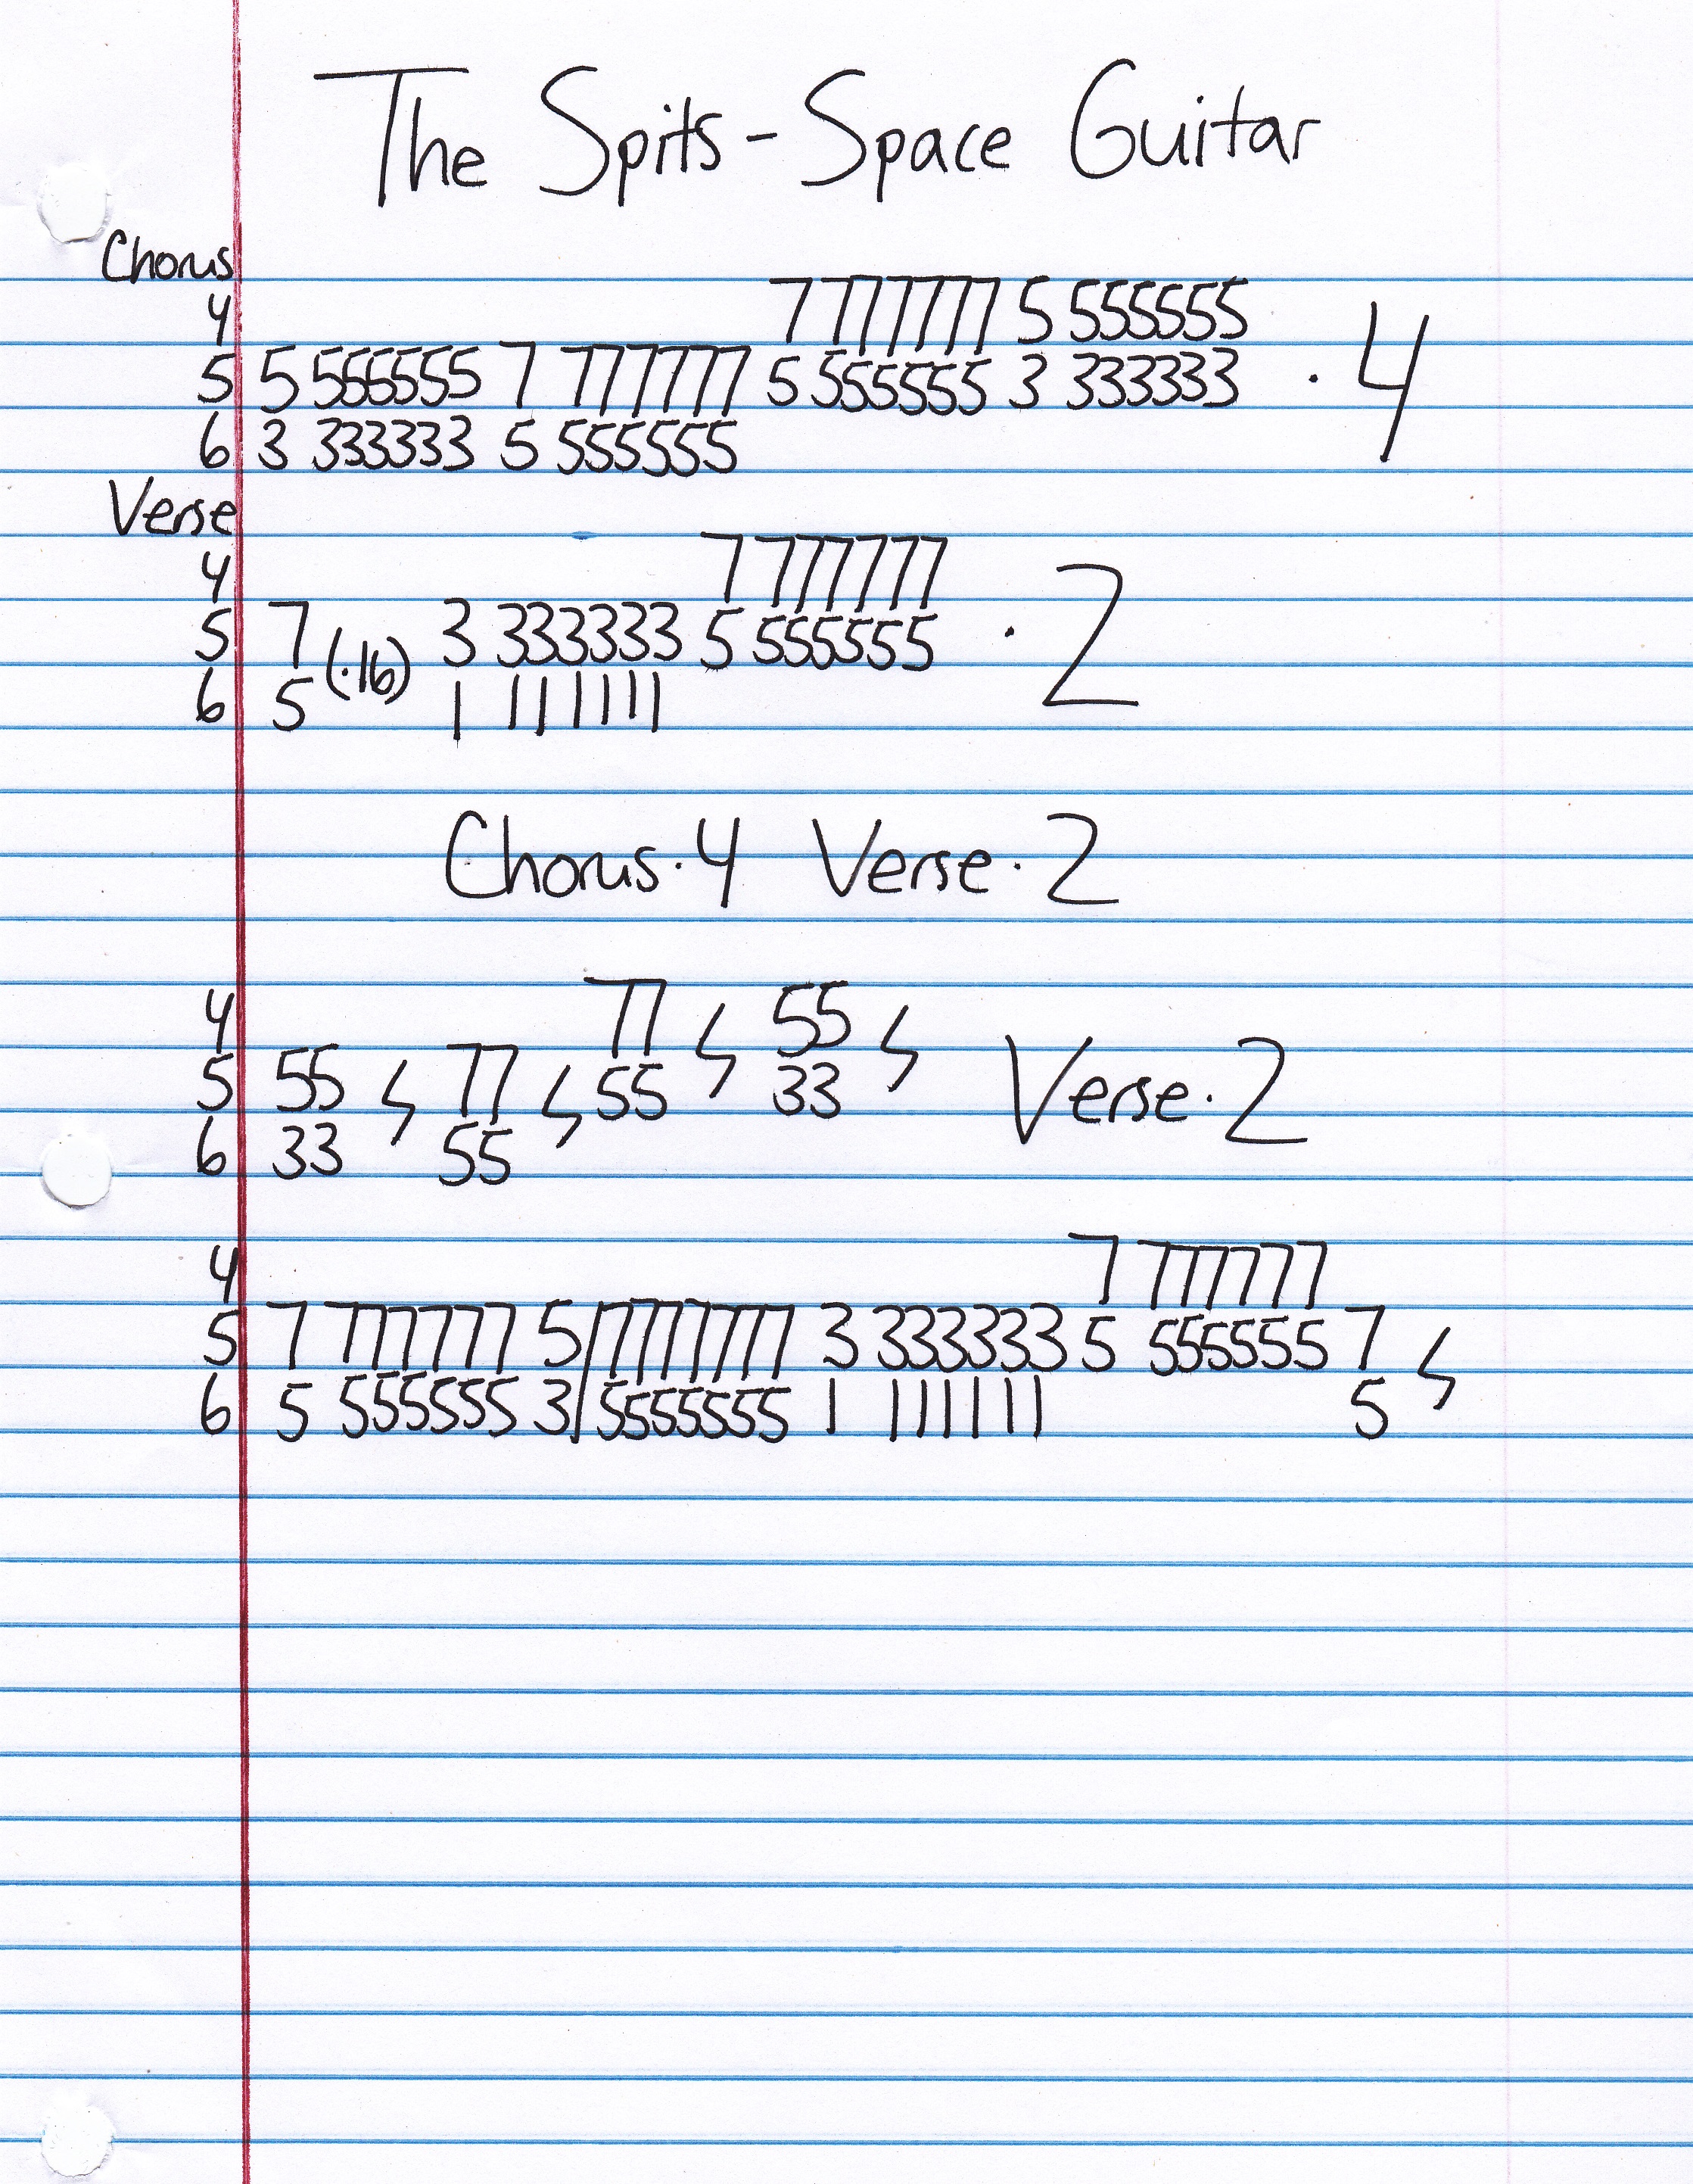 The Spits - Space Guitar
Chorus
4 7 777777 5 555555
5 5 556555 7 777777 5 555555 3 333333 · 4
6 3 333333 5 555555
Verse
4 7 777777
5 7 (·16) 3 333333 5 555555 · 2
6 5 1 111111
Chorus · 4 Verse · 2
4 77 55
5 55 77 55 33 Verse · 2
6 33 55
4 7 777777
5 7 777777 5/7777777 3 333333 5 555555 7
6 5 555555 3/5555555 1 111111 5